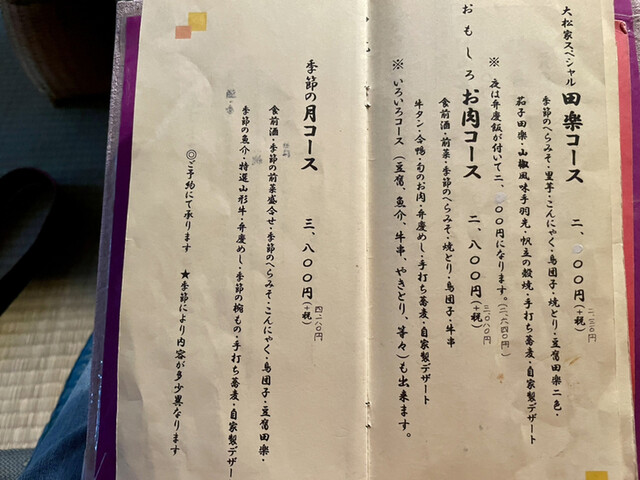 大松家スペシャル 田楽コース 二、〇〇〇円(+税)
二、二三〇円
季節のへらみそ・里芋・こんにゃく・鳥団子・焼とり・豆腐田楽二色・
茄子田楽・山椒風味手羽先・帆立の殻焼・手打ち蕎麦・自家製デザート
※ 夜は弁慶飯が付いて二、〇〇円になります。(二、六四〇円)
おもしろ お肉コース 二、八〇〇円(+税)
三、〇八〇円
食前酒・前菜・季節のへらみそ・焼とり・鳥団子・牛串
牛タン・合鴨・旬のお肉・弁慶めし・手打ち蕎麦・自家製デザート
※ いろいろコース(豆腐、魚介、牛串、やきとり、等々)も出来ます。
季節の月コース 三、八〇〇円(+税)
四一八〇円
食前酒・季節の前菜盛合せ・季節のへらみそ・こんにゃく・鳥団子・豆腐田楽・
季節の魚介・特選山形牛・弁慶めし・季節の椀もの・手打ち蕎麦・自家製デザー
◎ご予約にて承ります ★季節により内容が多少異なります